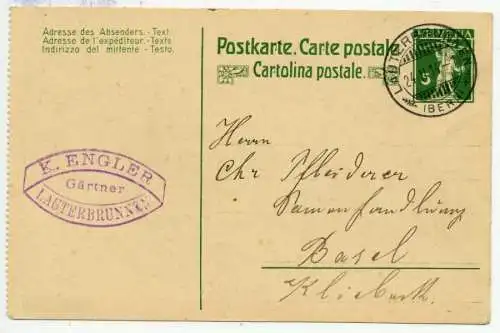 Adresse des Absenders.-Text.
Adresse de l'expéditeur.-Texte.
Indirizzo del mittente.-Testo.
Postkarte. Carte postale.
Cartolina postale.
LAUTERBRUNNEN
5
HELVETIA
(BERN)
K. ENGLER
Gärtner
LAUTERBRUNNEN
Herrn
Chr Pfleiderer
Samenhandlung
Basel